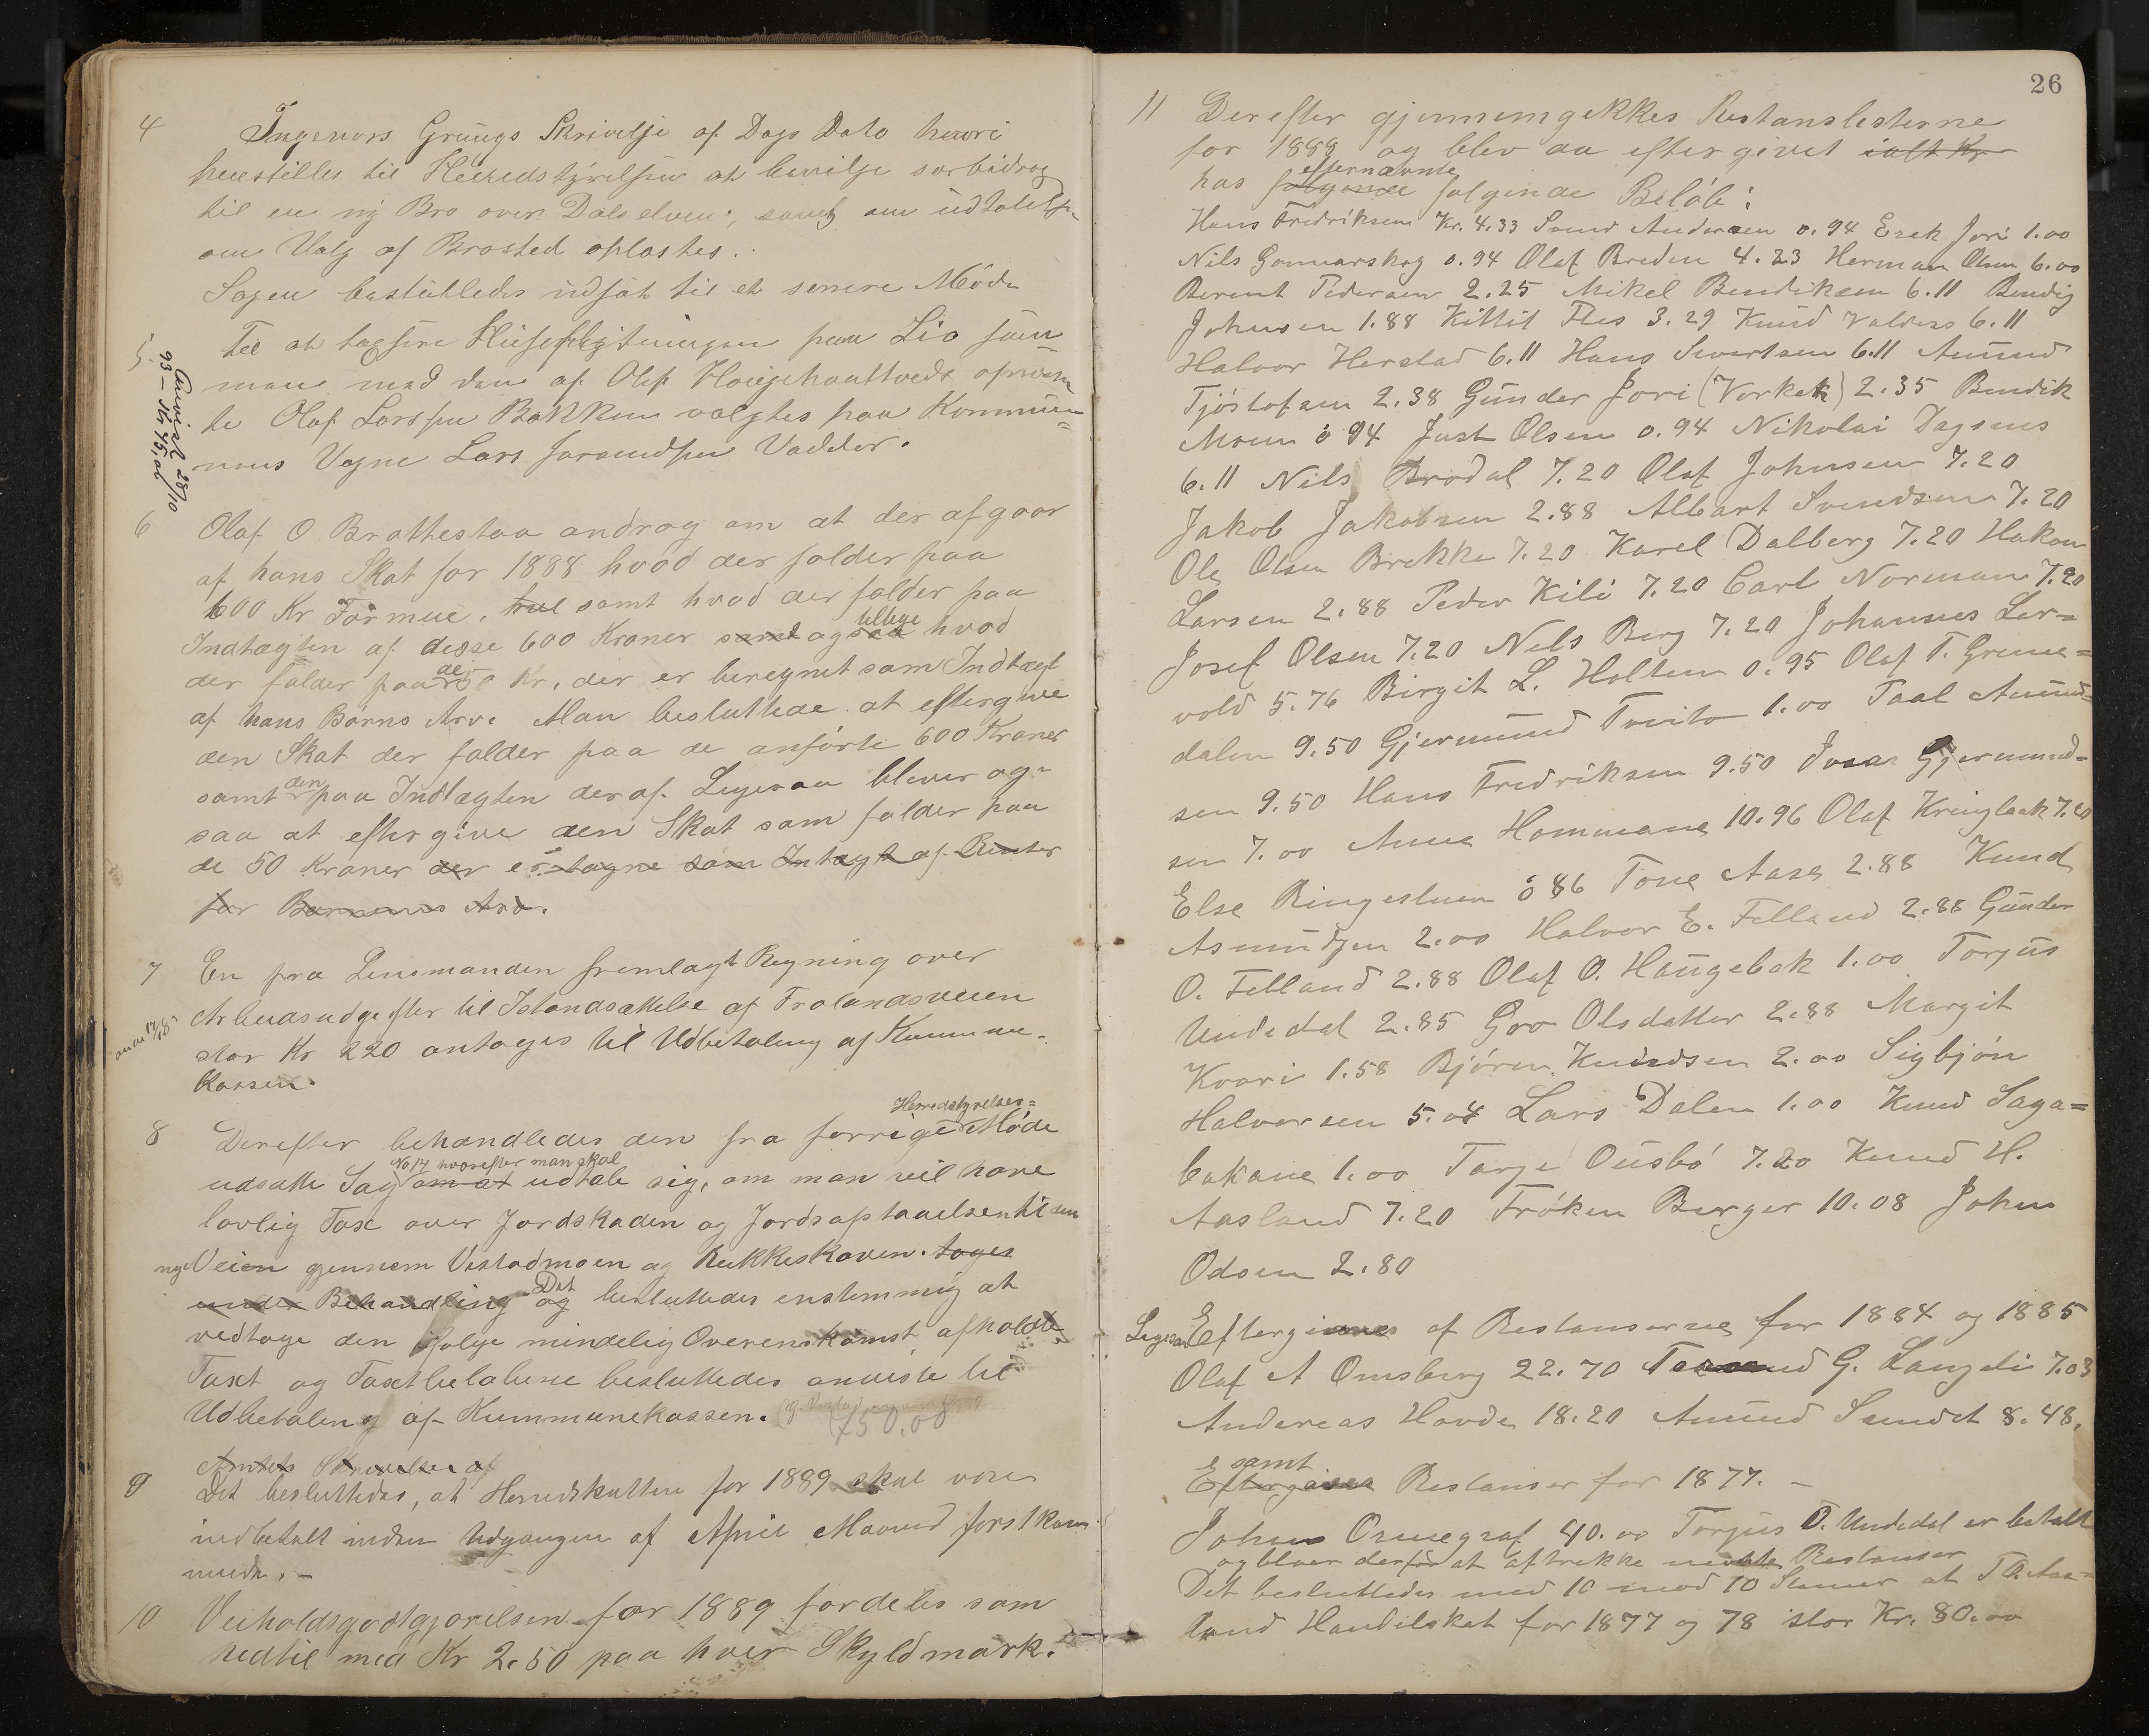 4 Ingeniørs Grüngs Skrivelse af Dags Dato hvori
henstilles til Herredstyrelsen at bevilge bidrag
til en ny Bro over Dalselven, samt om üdtalelse
om Valg af Brosted oplæstes.
Sagen besluttedes üdsat til et senere Møde
5 Til at taxere Hüseflytningen paa Lio
mand med den af Olef opnævn
te Olaf Larssen Bakken valgtes paa Kommü=
nens Vegne Lars Vadder.
Anvist 28/10
93 — Kr 45,00
6 Olaf O Brattestaa androg om at der afgaar
af hans Skat for 1888 hvad der falder paa
600 Kr Formue, samt hvad der falder paa
Indtægten af disse 600 Kroner samt ogsaa tillige hvad
der falder paa de 50 Kr, der er beregnet som Indtægt
af hans Børns Arv. Man besluttede at eftergive
den Skat der falder paa de anførte 600 Kroner
samt den paa Indtægten deraf. Ligesaa blever og-
saa at eftergive den Skat som falder paa
de 50 Kroner der er tagne som Intægt af Renter
for Børnenes Arv.
7 En fra Lensmanden fremlagt Regning over
Arbeidsudgifter til Istandsættelse af Frolandsveien
stor Kr 220 antoges til Udbetaling af Kommune-
kassen.
8 Derefter behandledes den fra forrige Herredstyrelses= Møde
udsatte Sag No 14 hvorefter man skal om at udtale sig, om man vil have
lovlig Taxt over Jordskaden og Jordsafstaaelsen til den
nye Veien gjennem Vestadmoen og Rukkeskoven. toges
under Behandling og Det besluttedes enstemmig at
vedtage den ifølge mindelig Overenskomst afholdte
Taxt og Taxtbeløbene besluttedes anviste til
Udbetaling af Kummunekassen.
750.00
Amtets Skrivelse af
9 Det besluttedes, at Herredskatten for 1889 skal være
indbetalt inden Udgangen af April Maaned først kom
mende. —
10 Veiholdsgodtgjørelsen for 1889 fordeles som
hedtil med Kr 2.50 paa hver Skyldmark.
26
11 Derefter gjennemgikkes Restanslisterne
for 1888 og blev da eftergivet ialt Kr
hos følgende efternævnte følgende Beløb:
Hans Fredriksen Kr. 4.33 Svend Andersen 0.94 Erek Jori 1.00
Nils Gonnarskog 0.94 Olaf Breden 4.23 Herman Olsen 6.00
Berent Pedersen 2.25 Mikel Bendiksen 6.11 Bendig
Johnsen 1.88 Kittil Flis 3.29 Knüd Valders 6.11
Halvor Herstad 6.11 Hans Sivertsen 6.11 Amünd
Tjøstofsen 2.38 Günder Jori (Vorkek) 2.35 Bendik
Moen 0 94 Just Olsen 0.94 Nikolai Dagsens
6.11 Nils Brodal 7.20 Olaf Johnsen 7.20
Jakob Jakobsen 2.88 Albart Svendsen 7.20
Ole Olsen Brekke 7.20 Karel Dalberg 7.20 Hakon
Larsen 2.88 Peder Kili 7.20 Carl Norman 7.20
Josef Olsen 7.20 Nils Berg 7.20 Johannes Ler=
vold 5.76 Birgit L. Holten 0.95 Olaf T. Grene=
dalen 9.50 Gjermünd Tveito 1.00 Paal Amünd=
sen 9.50 Hans Fredriksen 9.50 Gjermund=
sen 7.00 Anne Hommane 10.96 Olaf Kringlaak 7.20
Else Ringesluen 0 86 Tone Aase 2.88 Knud
Asmündsen 2.00 Halvor E. Felland 2.88 Günder
O. Felland 2.88 Olaf O. Haügebak 1.00 Torjüs
Undedal 2.85 Gro Olsdatter 2.88 Margit
Kvari 1.58 Bjørn Knüdsen 2.00 Sigbjøn
Halvorsen 5.04 Lars Dalen 1.00 Knud Saga=
bakane 1.00 Targe Oüsbø 7.20 Knud H.
Aasland 7.20 Frøken Burger 10.08 John
Odsen 2.80
Ligesaa Eftergives af Restanserne for 1884 og 1885
Olaf A Omsberg 22.70 G. Langeli 7.03
Andereas Hovde 18.20 Amünd Sundet 8.48.
samt Eftergives Restanser for 1877. —
John Ormegraf 40.00 Torjüs O. Undedal er betalt
og blver derfor at aftrekke Restanser
Det besluttedes med 10 mod 10 Stemer at T O. Aas=
land Handelskat for 1877 og 78 stor Kr. 80.00